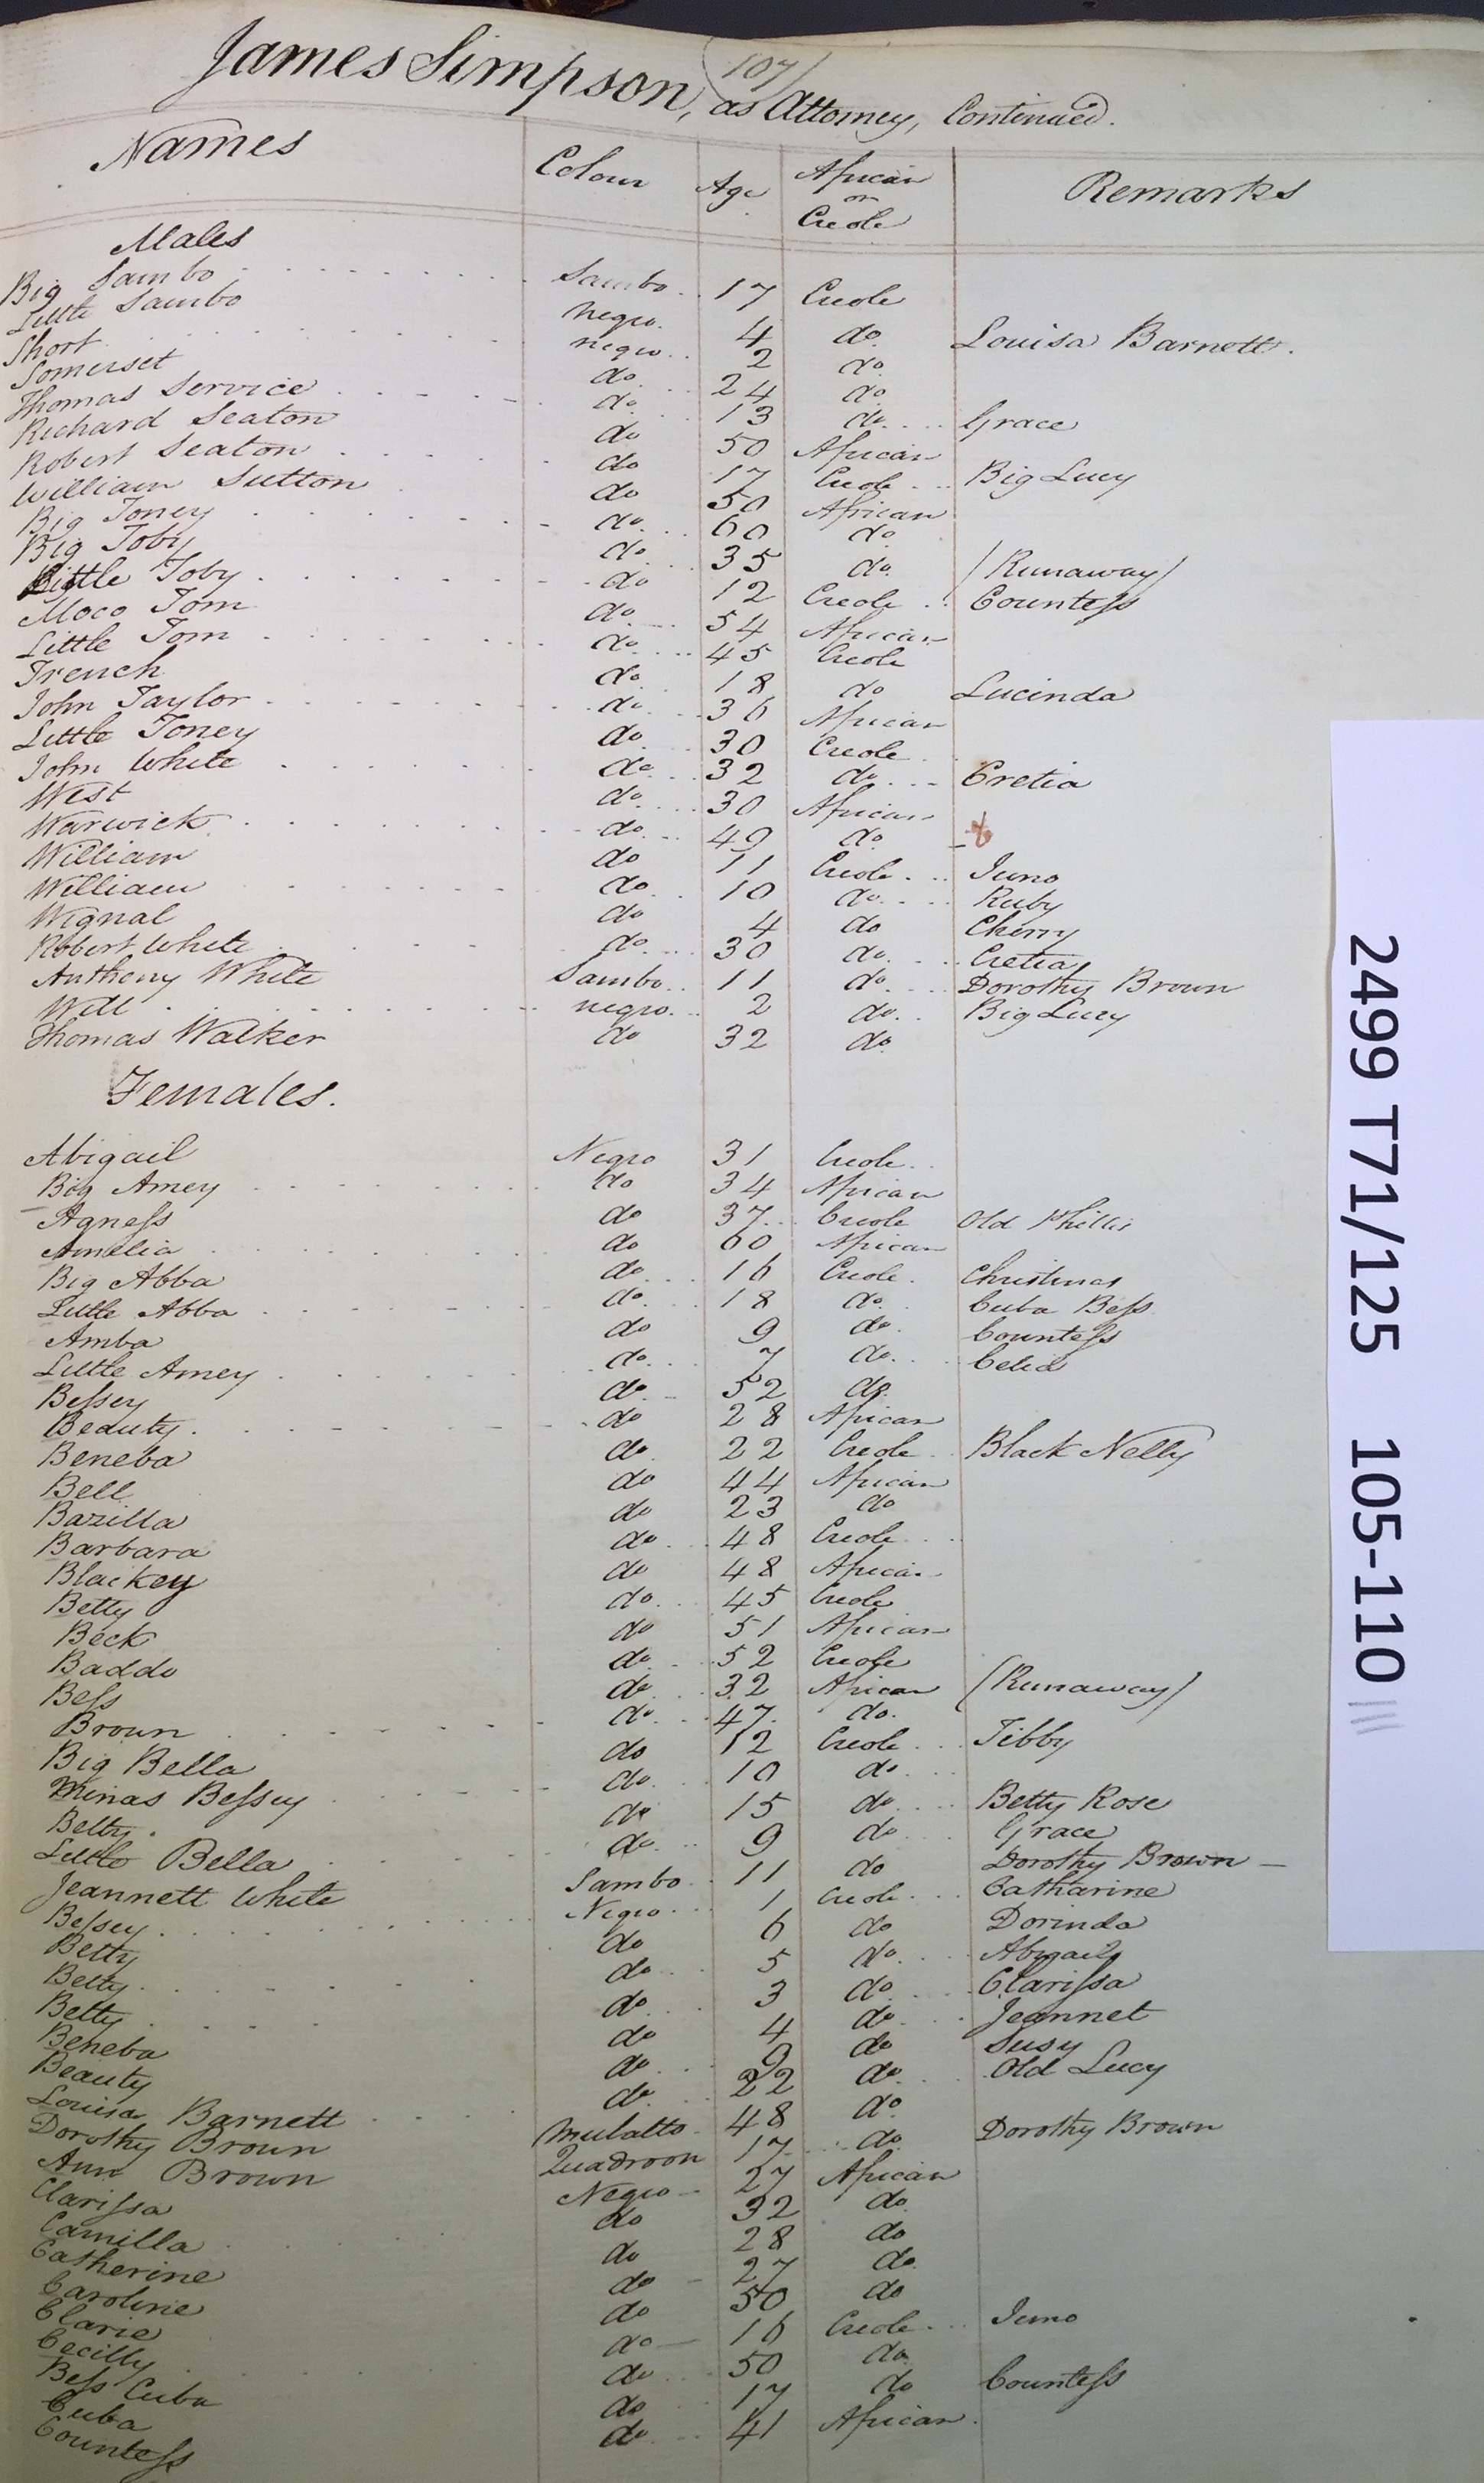 107
James Simpson, as Attorney, Continued.
Names Colour Age African or Creole Remarks
Males
Big Sambo Sambo 17 Creole
Little Sambo Negro 4 do Louisa Barnett.
Short negro 2 do
Somerset do 24 do
Thomas Service do 13 do Grace
Richard Seaton do 50 African
Robert Seaton do 17 Creole Big Lucy
William Sutton do 50 African
Big Toney do 60 do
Big Toby do 35 do (Runaway)
Little Toby do 12 Creole Countess
Moco Tom do 54 African
Little Tom do 45 Creole
Trench do 18 do Lucinda
John Taylor do 36 African
Little Toney do 30 Creole
John White do 32 do Cretia
West do 30 African
Warwick do 49 do
William do 11 Creole Juno
William do 10 do Ruby
Wignal do 4 do Cherry
Robert White do 30 do Cretia
Anthony White Sambo 11 do Dorothy Brown
Will negro 2 do Big Lucy
Thomas Walker do 32 do
Females.
Abigail Negro 31 Creole
Big Amey do 34 African
Agness do 37 Creole Old Phillis
Amelia do 60 African
Big Abba do 16 Creole Christinas
Little Abba do 18 do Cuba Bess
Amba do 9 do Countess
Little Amey do 7 do Celia
Bessey do 52 do
Beauty do 28 African
Beneba do 22 Creole Black Nelly
Bell do 44 African
Bazilla do 23 do
Barbara do 48 Creole
Blackey do 48 African
Betty do 45 Creole
Beck do 51 African
Baddo do 52 Creole
Bess do 32 African (Runaway)
Brown do 47 do
Big Bella do 12 Creole Tibby
Minas Bessey do 10 do
Betty do 15 do Betty Rose
Little Bella do 9 do Grace
Jeannett White Sambo 11 do Dorothy Brown
Bessey Negro 1 Creole Catharine
Betty do 6 do Dorinda
Betty do 5 do Abigail
Betty do 3 do Clarissa
Beneba do 4 do Jeannet
Beauty do 9 do Susy
Louisa Barnett do 22 do Old Lucy
Dorothy Brown Mulatto 48 do
Ann Brown Quadroon 17 do Dorothy Brown
Clarissa Negro 27 African
Camilla do 32 do
Catherine do 28 do
Caroline do 27 do
Clarie do 50 do
Cecilly do 16 Creole Juno
Bess Cuba do 50 do
Cuba do 17 do Countess
Countess do 41 African
2499 T71/125 105-110